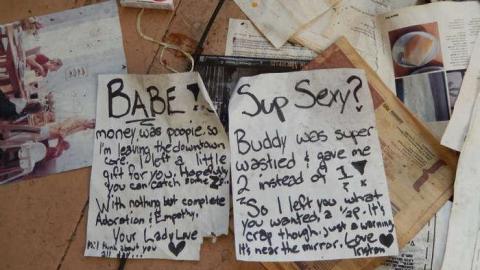 BABE!
money was poopie, so
I'm leaving the downtown
core. I left a little
gift for you. Hopefully
you can catch some zz's...
With nothing but complete
Adoration & Empathy.
Your Lady Love
P.S. I think about you
Sup Sexy?
Buddy was super
wastied & gave me
2 instead of 1
So I left you what
you wanted, a ½p. It's
crap though. Just a warning.
It's near the mirror. Love